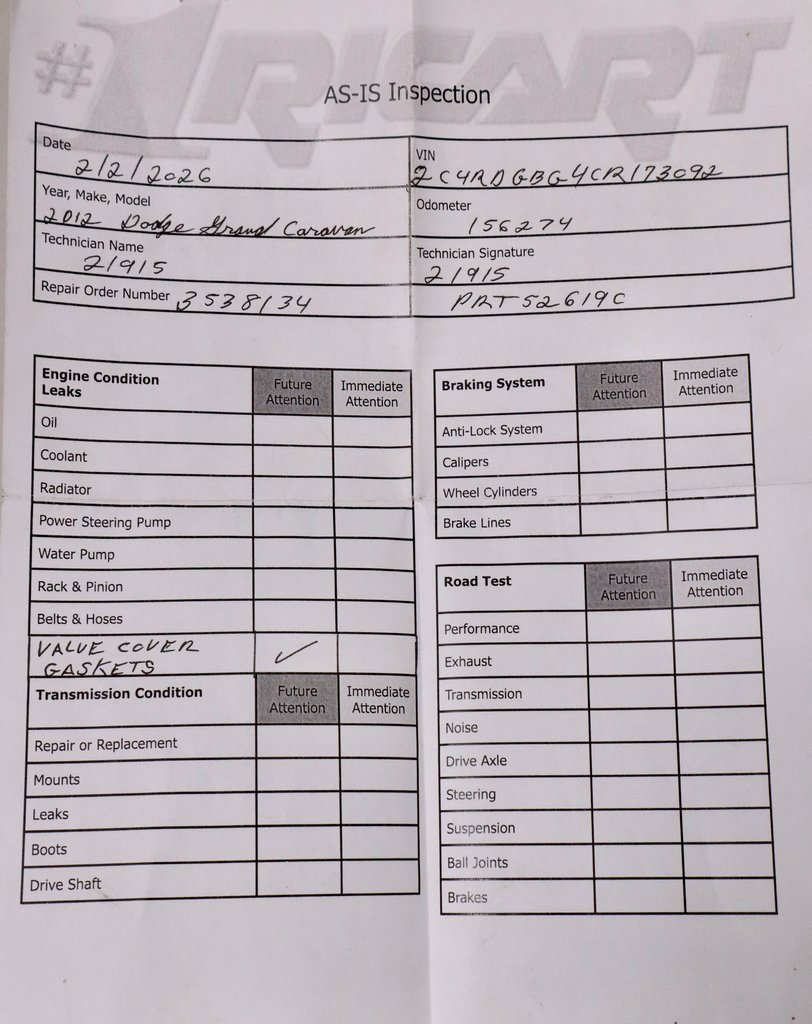 #1 RICART
AS-IS Inspection
Date
2/2/2026
VIN
2C4RDGBG4CR173092
Year, Make, Model
2012 Dodge Grand Caravan
Odometer
156274
Technician Name
21915
Technician Signature
21915
Repair Order Number 3538134
PRT52619C
Engine Condition Leaks
Future Attention
Immediate Attention
Oil
Coolant
Radiator
Power Steering Pump
Water Pump
Rack & Pinion
Belts & Hoses
VALUE COVER
GASKETS ✓
Transmission Condition
Future Attention
Immediate Attention
Repair or Replacement
Mounts
Leaks
Boots
Drive Shaft
Braking System
Future Attention
Immediate Attention
Anti-Lock System
Calipers
Wheel Cylinders
Brake Lines
Road Test
Future Attention
Immediate Attention
Performance
Exhaust
Transmission
Noise
Drive Axle
Steering
Suspension
Ball Joints
Brakes